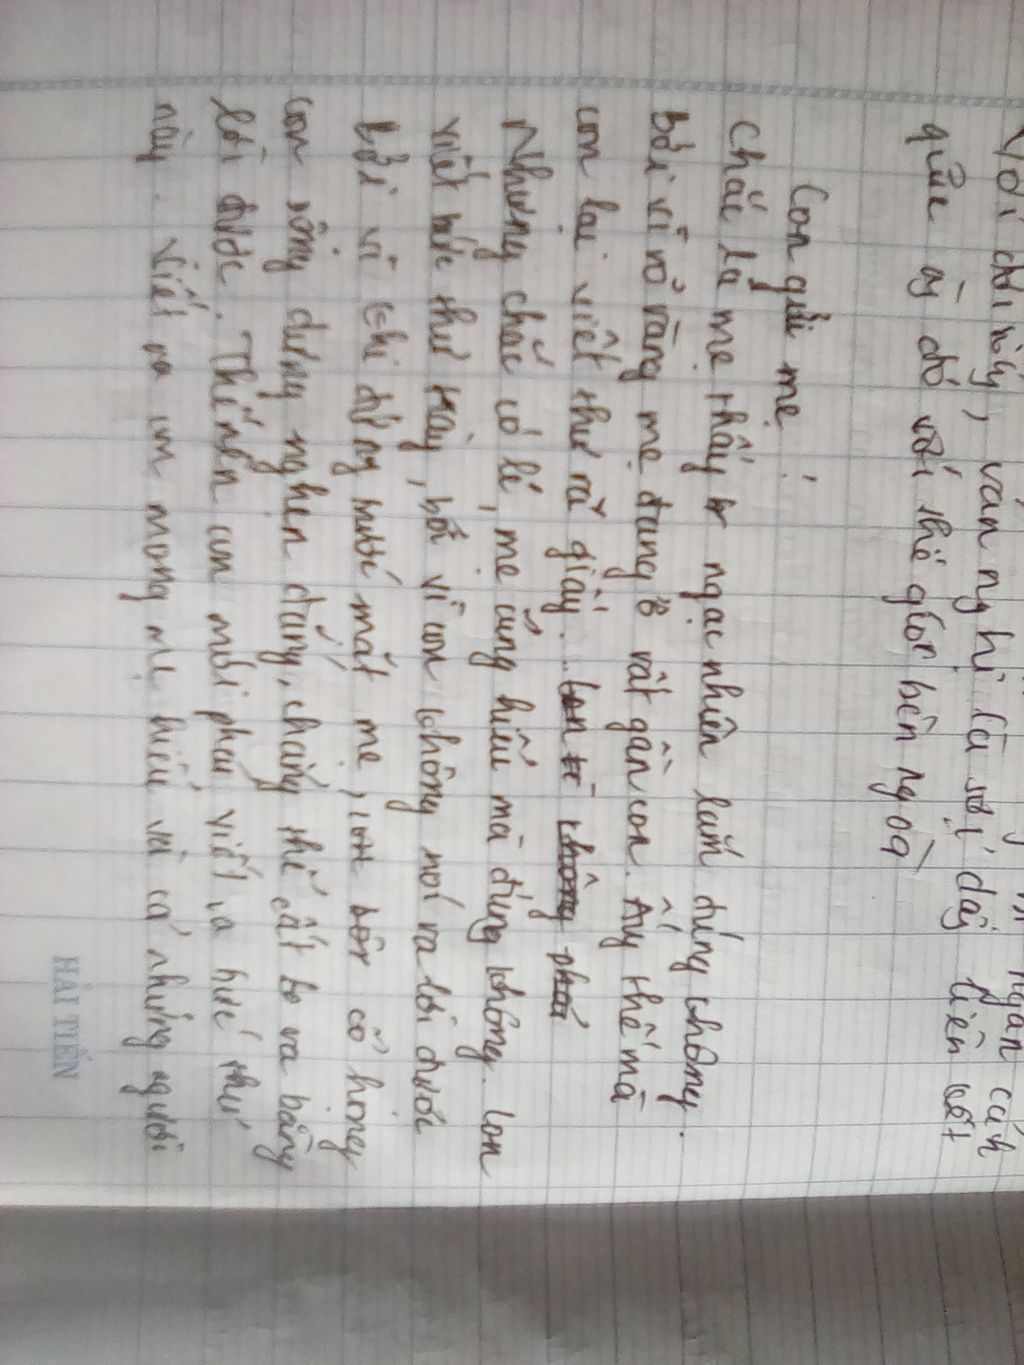 với chơi này, vẫn nghĩ là sợi dây liên kết
quần áy đó với thế giới bên ngoà
Con gửi mẹ!
Chắc là mẹ thấy ngạc nhiên lắm đúng không.
Bởi vì rõ ràng mẹ đang ở rất gần con. Ấy thế mà
con lại viết thư ra giấy...
Nhưng chắc có lẽ, mẹ cũng hiểu mà đúng không. Con
viết bức thư này, bởi vì con không nói ra lời được
bởi vì khi đứng trước mắt mẹ, con cổ họng
con sống dưng nghẹn đắng, chẳng thể cất ra bằng
lời được. Thế nên con mới phải viết ra bức thư
này. Viết ra con mong mẹ hiểu và cả những người
HẢI TIẾN